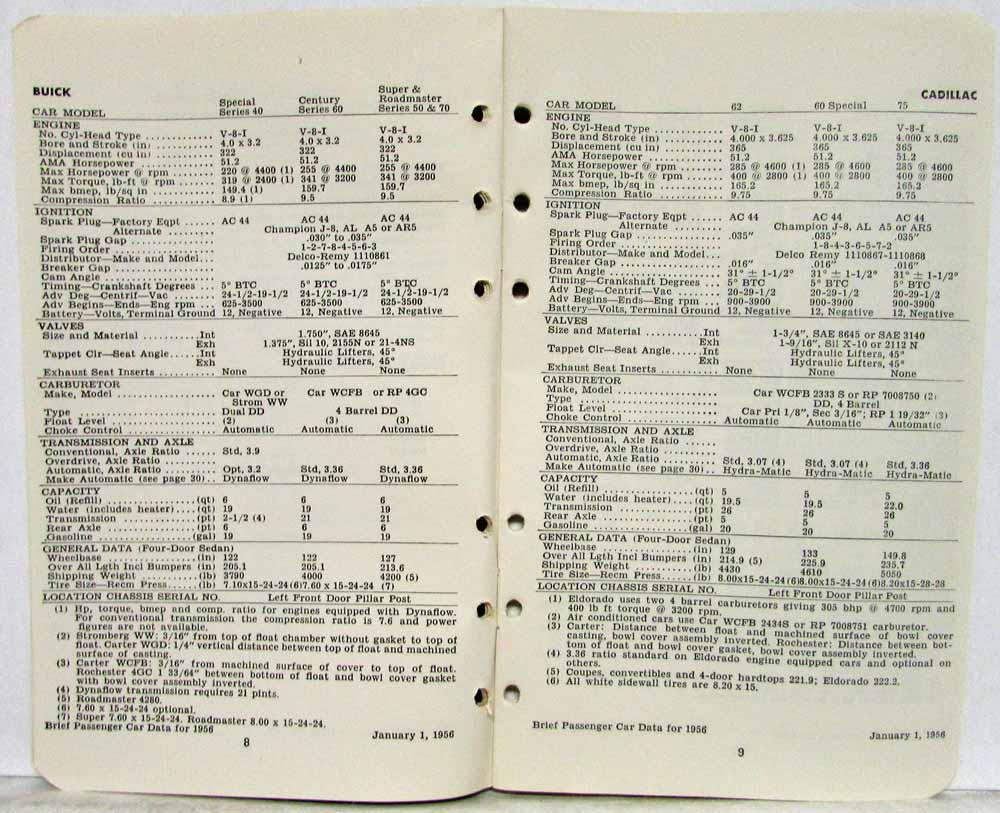 BUICK
CAR MODEL Special Series 40 Century Series 60 Super & Roadmaster Series 50 & 70
ENGINE
No. Cyl-Head Type ............ V-8-I V-8-I V-8-I
Bore and Stroke (in) ........... 4.0 x 3.2 4.0 x 3.2 4.0 x 3.2
Displacement (cu in) .......... 322 322 322
AMA Horsepower ............. 51.2 51.2 51.2
Max Horsepower @ rpm ....... 220 @ 4400 (1) 255 @ 4400 255 @ 4400
Max Torque, lb-ft @ rpm ..... 319 @ 2400 (1) 341 @ 3200 341 @ 3200
Max bmep, lb/sq in .......... 149.4 (1) 159.7 159.7
Compression Ratio ........... 8.9 (1) 9.5 9.5
IGNITION
Spark Plug—Factory Eqpt ...... AC 44 AC 44 AC 44
Alternate ......... Champion J-8, AL A5 or AR5
Spark Plug Gap ............... .030" to .035"
Firing Order ................. 1-2-7-8-4-5-6-3
Distributor—Make and Model... Delco-Remy 1110861
Breaker Gap .................. .0125" to .0175"
Cam Angle ....................
Timing—Crankshaft Degrees ... 5° BTC 5° BTC 5° BTC
Adv Deg—Centrif—Vac ....... 24-1/2-19-1/2 24-1/2-19-1/2 24-1/2-19-1/2
Adv Begins—Ends—Eng rpm .. 625-3500 625-3500 625-3500
Battery—Volts, Terminal Ground 12, Negative 12, Negative 12, Negative
VALVES
Size and Material ............Int 1.750", SAE 8645
Exh 1.375", Sil 10, 2155N or 21-4NS
Tappet Clr—Seat Angle......Int Hydraulic Lifters, 45°
Exh Hydraulic Lifters, 45°
Exhaust Seat Inserts ........... None None None
CARBURETOR
Make, Model .................. Car WGD or Car WCFB or RP 4GC
Strom WW
Type ........................ Dual DD 4 Barrel DD
Float Level ................... (2) (3) (3)
Choke Control ................ Automatic Automatic Automatic
TRANSMISSION AND AXLE
Conventional, Axle Ratio ...... Std, 3.9
Overdrive, Axle Ratio ..........
Automatic, Axle Ratio ......... Opt, 3.2 Std, 3.36 Std, 3.36
Make Automatic (see page 30).. Dynaflow Dynaflow Dynaflow
CAPACITY
Oil (Refill) ................(qt) 6 6 6
Water (includes heater)....(qt) 19 19 19
Transmission ..............(pt) 2-1/2 (4) 21 21
Rear Axle .................(pt) 6 6 6
Gasoline .................(gal) 19 19 19
GENERAL DATA (Four-Door Sedan)
Wheelbase ................(in) 122 122 127
Over All Lgth Incl Bumpers (in) 205.1 205.1 213.6
Shipping Weight ..........(lb) 3790 4000 4200 (5)
Tire Size—Recm Press......(lb) 7.10x15-24-24(6)7.60 x 15-24-24 (7)
LOCATION CHASSIS SERIAL NO. Left Front Door Pillar Post
(1) Hp, torque, bmep and comp. ratio for engines equipped with Dynaflow.
For conventional transmission the compression ratio is 7.6 and power
figures are not available.
(2) Stromberg WW: 3/16" from top of float chamber without gasket to top of
float. Carter WGD: 1/4" vertical distance between top of float and machined
surface of casting.
(3) Carter WCFB: 3/16" from machined surface of cover to top of float.
Rochester 4GC 1 33/64" between bottom of float and bowl cover gasket
with bowl cover assembly inverted.
(4) Dynaflow transmission requires 21 pints.
(5) Roadmaster 4280.
(6) 7.60 x 15-24-24 optional.
(7) Super 7.60 x 15-24-24. Roadmaster 8.00 x 15-24-24.
Brief Passenger Car Data for 1956 January 1, 1956
8
CADILLAC
CAR MODEL 62 60 Special 75
ENGINE
No. Cyl-Head Type ............ V-8-I V-8-I V-8-I
Bore and Stroke (in) ........... 4.000 x 3.625 4.000 x 3.625 4.000 x 3.625
Displacement (cu in) .......... 365 365 365
AMA Horsepower ............. 51.2 51.2 51.2
Max Horsepower @ rpm ....... 285 @ 4600 (1) 285 @ 4600 285 @ 4600
Max Torque, lb-ft @ rpm ..... 400 @ 2800 (1) 400 @ 2800 400 @ 2800
Max bmep, lb/sq in .......... 165.2 165.2 165.2
Compression Ratio ........... 9.75 9.75 9.75
IGNITION
Spark Plug—Factory Eqpt ...... AC 44 AC 44 AC 44
Alternate ......... Champion J-8, AL A5 or AR5
Spark Plug Gap ............... .035" .035" .035"
Firing Order ................. 1-8-4-3-6-5-7-2
Distributor—Make and Model... Delco Remy 1110867-1110868
Breaker Gap .................. .016" .016" .016"
Cam Angle .................... 31° ± 1-1/2° 31° ± 1-1/2° 31° ± 1-1/2°
Timing—Crankshaft Degrees ... 5° BTC 5° BTC 5° BTC
Adv Deg—Centrif—Vac ....... 20-29-1/2 20-29-1/2 20-29-1/2
Adv Begins—Ends—Eng rpm .. 900-3900 900-3900 900-3900
Battery—Volts, Terminal Ground 12, Negative 12, Negative 12, Negative
VALVES
Size and Material ............Int 1-3/4", SAE 8645 or SAE 3140
Exh 1-9/16", Sil X-10 or 2112 N
Tappet Clr—Seat Angle......Int Hydraulic Lifters, 45°
Exh Hydraulic Lifters, 45°
Exhaust Seat Inserts ........... None None None
CARBURETOR
Make, Model .................. Car WCFB 2333 S or RP 7008750 (2)
Type ........................ DD, 4 Barrel
Float Level ................... Car Pri 1/8", Sec 3/16"; RP 1 19/32" (3)
Choke Control ................ Automatic Automatic Automatic
TRANSMISSION AND AXLE
Conventional, Axle Ratio ......
Overdrive, Axle Ratio ..........
Automatic, Axle Ratio ......... Std, 3.07 (4) Std, 3.07 (4) Std, 3.36
Make Automatic (see page 30).. Hydra-Matic Hydra-Matic Hydra-Matic
CAPACITY
Oil (Refill) ................(qt) 5 5 5
Water (includes heater)....(qt) 19.5 19.5 22.0
Transmission ..............(pt) 26 26 26
Rear Axle .................(pt) 5 5 5
Gasoline .................(gal) 20 20 20
GENERAL DATA (Four-Door Sedan)
Wheelbase ................(in) 129 133 149.8
Over All Lgth Incl Bumpers (in) 214.9 (5) 225.9 235.7
Shipping Weight ..........(lb) 4430 4610 5050
Tire Size—Recm Press......(lb) 8.00x15-24-24(6)8.00x15-24-24(6)8.20x15-28-28
LOCATION CHASSIS SERIAL NO. Left Front Door Pillar Post
(1) Eldorado uses two 4 barrel carburetors giving 305 bhp @ 4700 rpm and
400 lb ft torque @ 3200 rpm.
(2) Air conditioned cars use Car WCFB 2434S or RP 7008751 carburetor.
(3) Carter: Distance between float and machined surface of bowl cover
casting, bowl cover assembly inverted. Rochester: Distance between bot-
tom of float and bowl cover gasket, bowl cover assembly inverted.
(4) 3.36 ratio standard on Eldorado engine equipped cars and optional on
others.
(5) Coupes, convertibles and 4-door hardtops 221.9; Eldorado 222.2.
(6) All white sidewall tires are 8.20 x 15.
Brief Passenger Car Data for 1956 January 1, 1956
9